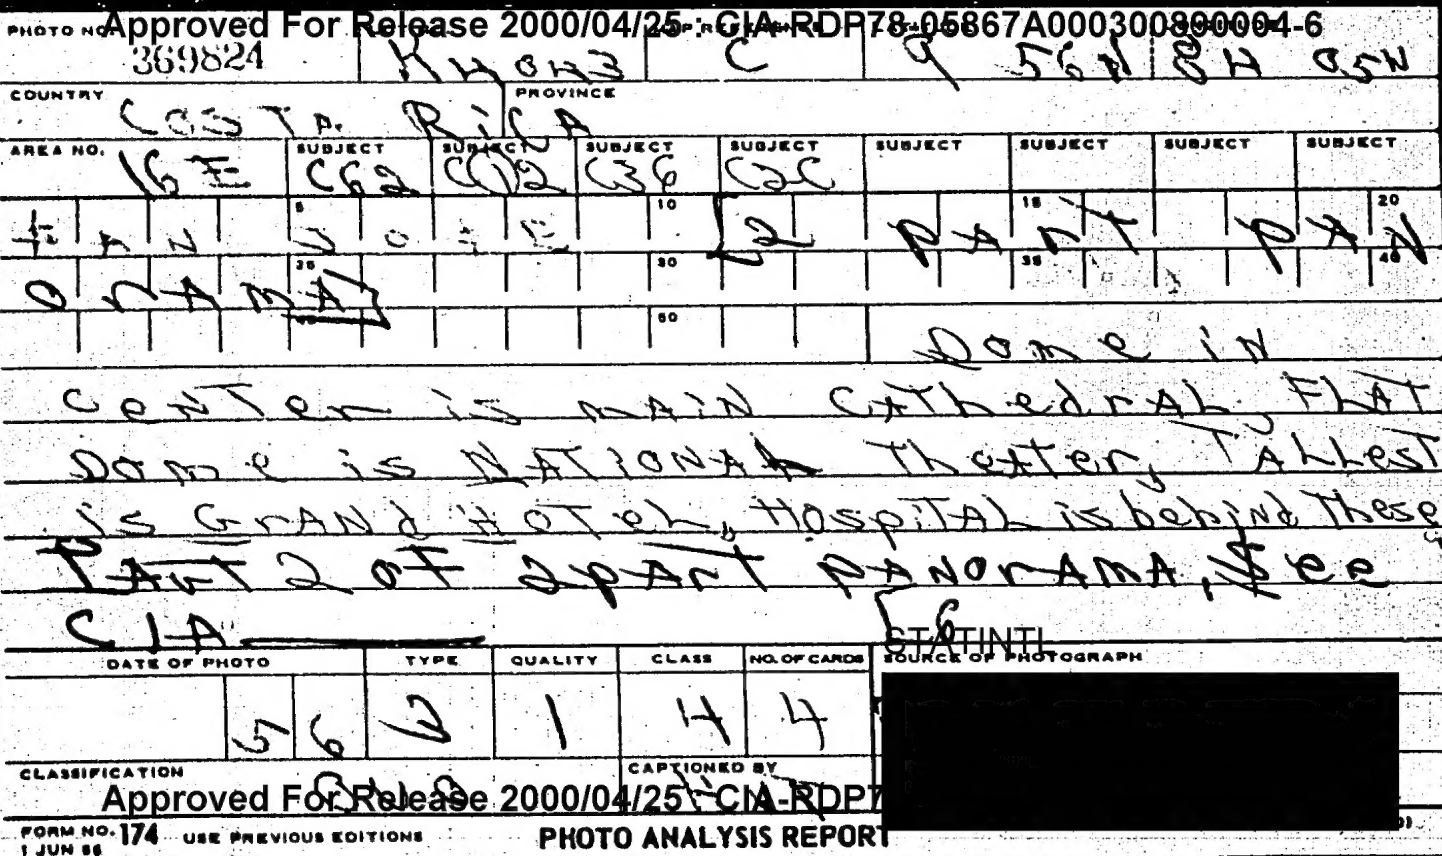 Approved For Release 2000/04/25 : CIA-RDP78-05867A000300800004-6
PHOTO NO.
369824 C 9 56N 84 05W
COUNTRY PROVINCE
COSTA RICA
AREA NO. SUBJECT SUBJECT SUBJECT SUBJECT SUBJECT SUBJECT SUBJECT SUBJECT
16E C62 C36 C2C
5 10 15 20
SAN JOSE [2 PArT PAN
25 30 35 40
OrAMA]
50
Dome iN
CeNTer is MAiN CATHedrAL, FLAT
Dome is NATIONAL TheATer, TALLesT
is GrANd HOTeL, HOspiTAL is behiNd These
PArT 2 oF 2pArT PANOrAMA, See
CIA
STATINTL
DATE OF PHOTO TYPE QUALITY CLASS NO. OF CARDS SOURCE OF PHOTOGRAPH
56 1 4 4
CLASSIFICATION CAPTIONED BY
Approved For Release 2000/04/25 : CIA-RDP7
FORM NO. 174 USE PREVIOUS EDITIONS PHOTO ANALYSIS REPORT
1 JUN 56